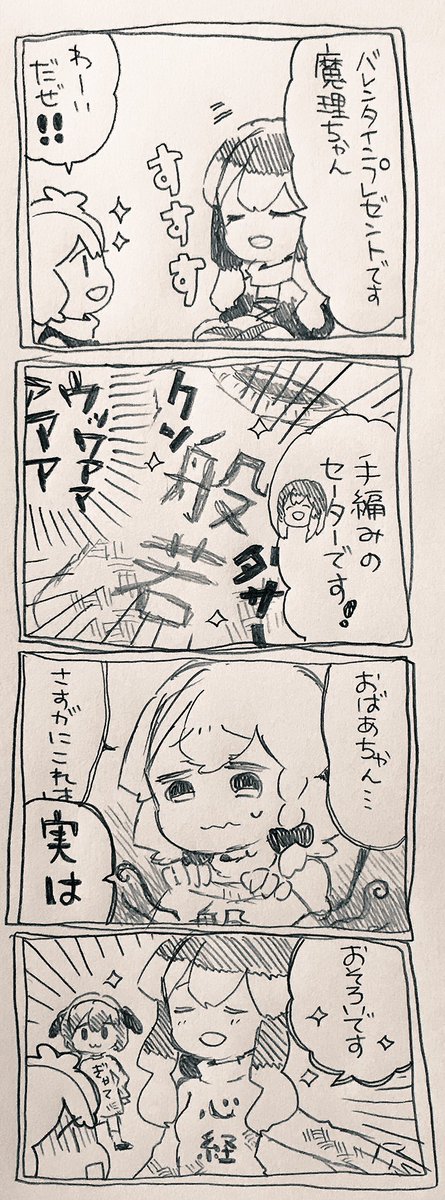 バレンタインプレゼントです
魔理ちゃん
すすす
わーい
だぜ!!
手編みの
セーターです!
般若
クン
ダサー
ウッワァァ
アアア
おばあちゃん…
さすがにこれは
実は
般
おそろいです
心経
ぎゃてー